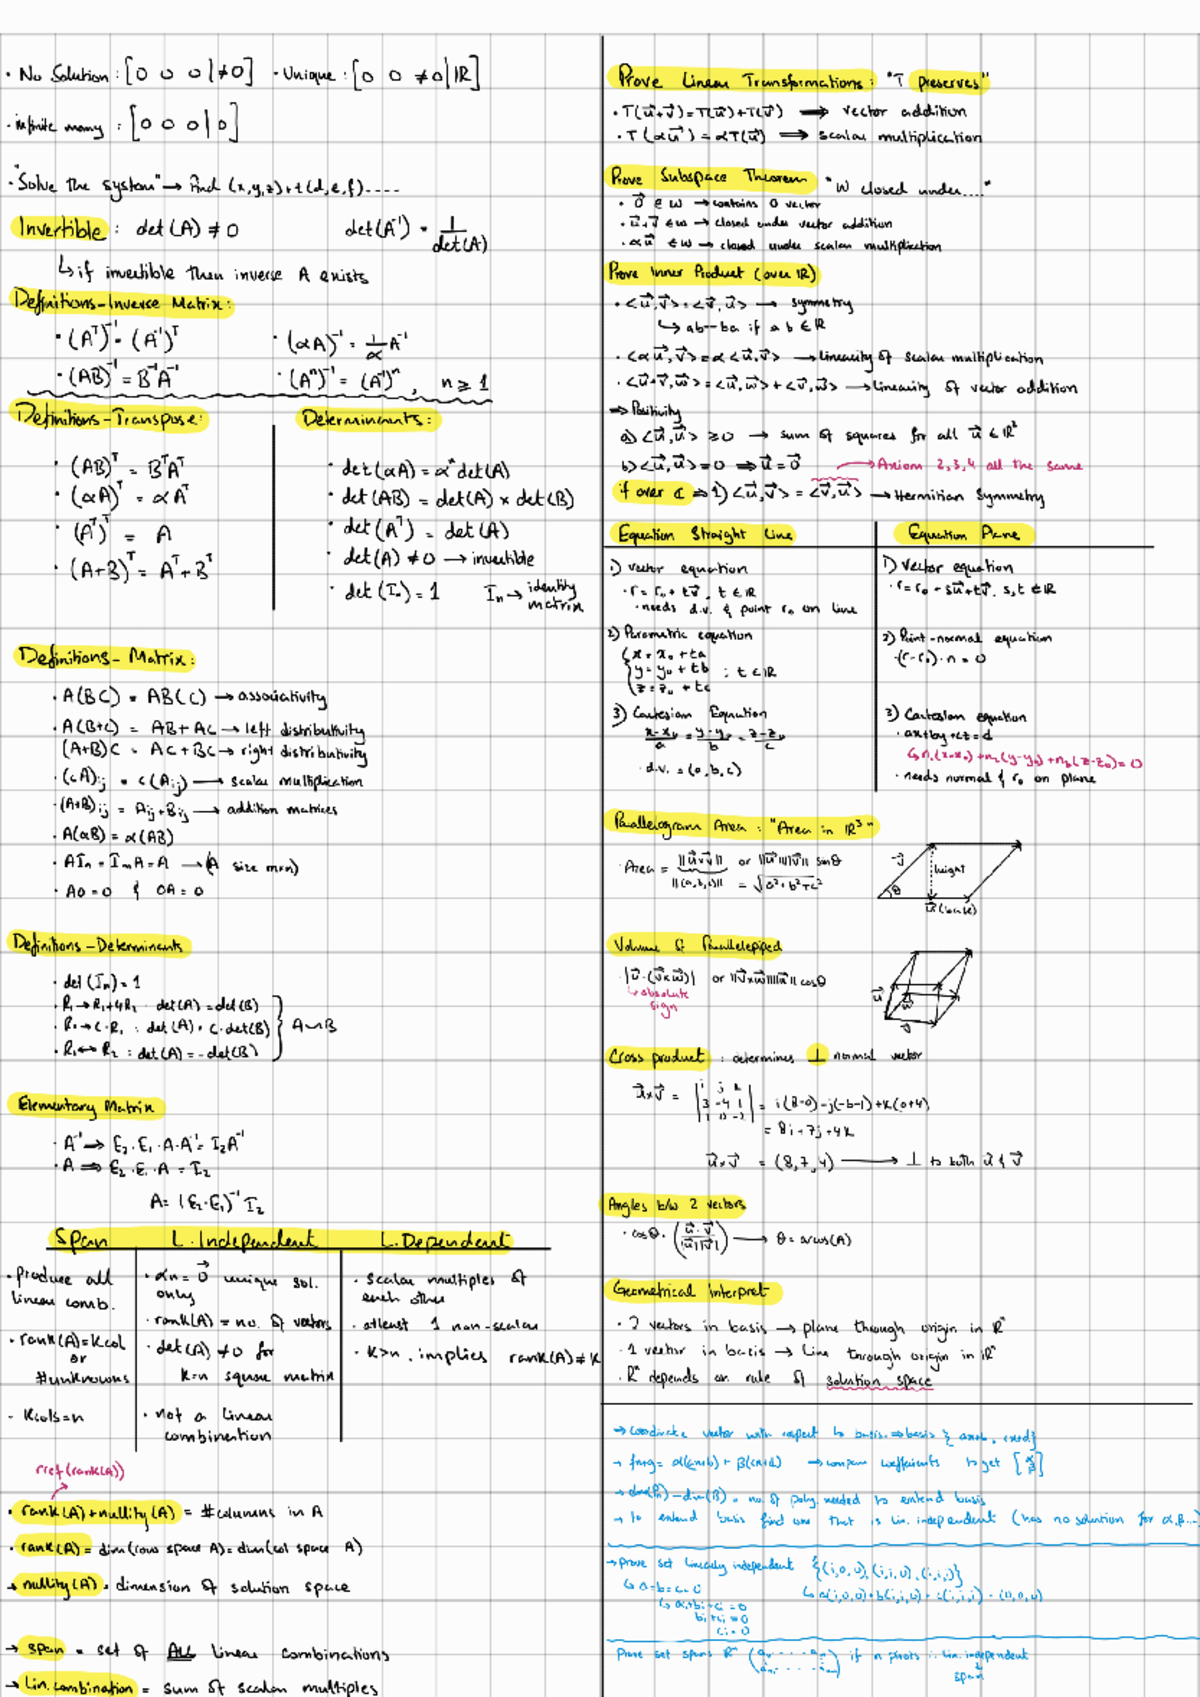 · No Solution : [0 0 0 | ≠0] · Unique : [0 0 ≠0 | ℝ]
· infinite many : [0 0 0 | 0]
· "Solve the system" → find (x,y,z)+t(d,e,f)....
Invertible : det(A) ≠ 0 det(A⁻¹) = 1/det(A)
↳ if invertible then inverse A exists
Definitions - Inverse Matrix:
· (Aᵀ)⁻¹ = (A⁻¹)ᵀ · (αA)⁻¹ = 1/α A⁻¹
· (AB)⁻¹ = B⁻¹A⁻¹ · (Aⁿ)⁻¹ = (A⁻¹)ⁿ, n ≥ 1
Definitions - Transpose:
· (AB)ᵀ = BᵀAᵀ
· (αA)ᵀ = αAᵀ
· (Aᵀ)ᵀ = A
· (A+B)ᵀ = Aᵀ+Bᵀ
Determinants:
· det(αA) = αⁿdet(A)
· det(AB) = det(A) × det(B)
· det(Aᵀ) = det(A)
· det(A) ≠ 0 → invertible
· det(Iₙ) = 1 Iₙ → identity matrix
Definitions - Matrix:
· A(BC) = AB(C) → associativity
· A(B+C) = AB + AC → left distributivity
(A+B)C = AC + BC → right distributivity
· (cA)ij = c(Aij) → scalar multiplication
· (A+B)ij = Aij + Bij → addition matrices
· A(αB) = α(AB)
· AIₙ = IₘA = A → (A size m×n)
· A0 = 0 & 0A = 0
Definitions - Determinants
· det(Iₙ) = 1
· R₁ → R₁+4R₂ det(A) = det(B)
· R₁ → c·R₁ : det(A) = c·det(B) } A~B
· R₁ ↔ R₂ : det(A) = -det(B)
Elementary Matrix
· A⁻¹ ⇒ E₂·E₁·A·A⁻¹ = I₂A⁻¹
· A ⇒ E₂·E₁·A = I₂
A = (E₂·E₁)⁻¹ I₂
Span L.Independent L.Dependent
· produce all linear comb.
· rank(A) = k col or #unknowns
- k cols = n
· αn = 0⃗ unique sol. only
· rank(A) = no. of vectors
· det(A) ≠ 0 for k=n square matrix
· not a linear combination
· scalar multiples of each other
· atleast 1 non-scalar
· k>n, implies rank(A) ≠ k
rref(rank(A))
· rank(A)+nullity(A) = #columns in A
· rank(A) = dim(row space A) = dim(col space A)
→ nullity(A) = dimension of solution space
→ span = set of ALL linear combinations
→ Lin. combination = sum of scalar multiples
Prove Linear Transformations: "T preserves"
· T(u⃗+v⃗) = T(u⃗)+T(v⃗) ⇒ vector addition
· T(αu⃗) = αT(u⃗) ⇒ scalar multiplication
Prove Subspace Theorem "W closed under...."
· 0⃗ ∈ W → contains 0 vector
· u⃗+v⃗ ∈ W → closed under vector addition
· αu⃗ ∈ W → closed under scalar multiplication
Prove Inner Product (over ℝ)
· <u⃗,v⃗> = <v⃗,u⃗> → symmetry
↳ ab=ba if a b ∈ ℝ
· <αu⃗,v⃗> = α<u⃗,v⃗> → linearity of scalar multiplication
· <u⃗+v⃗,w⃗> = <u⃗,w⃗> + <v⃗,w⃗> → linearity of vector addition
⇒ Positivity
a) <u⃗,u⃗> ≥ 0 → sum of squares for all u⃗ ∈ ℝ²
b) <u⃗,u⃗> = 0 ⇒ u⃗ = 0⃗ → Axiom 2,3,4 all the same
if over ℂ ⇒ 1) <u⃗,v⃗> = <v⃗,u⃗> → Hermitian Symmetry
Equation Straight Line
1) vector equation
· r = r₀ + tv⃗, t ∈ ℝ
· needs d.v. & point r₀ on line
2) Parametric equation
{ x = x₀ + ta
y = y₀ + tb ; t ∈ ℝ
z = z₀ + tc
3) Cartesian Equation
x-x₀/a = y-y₀/b = z-z₀/c
· d.v. = (a,b,c)
Equation Plane
1) Vector equation
· r = r₀ + su⃗+tv⃗, s,t ∈ ℝ
2) Point-normal equation
· (r-r₀)·n = 0
3) Cartesian equation
· ax+by+cz = d
↳ n₁(x-x₀)+n₂(y-y₀)+n₃(z-z₀) = 0
· needs normal & r₀ on plane
Parallelogram Area : "Area in ℝ³"
· Area = ||u⃗×v⃗|| or ||u⃗|| ||v⃗|| sinθ
||(a,b,c)|| = √a²+b²+c²
v⃗ height
θ
u⃗ (base)
Volume of Parallelepiped
· |u⃗·(v⃗×w⃗)| or ||v⃗×w⃗|| ||u⃗|| cosθ
↳ absolute sign
u⃗ w⃗ v⃗
Cross product : determines ⊥ normal vector
u⃗×v⃗ = | i j k
3 -4 1 | = i(8-0)-j(-6-1)+k(0+4)
1 0 -2
= 8i+7j+4k
u⃗×v⃗ = (8,7,4) → ⊥ to both u⃗ & v⃗
Angles b/w 2 vectors
· cosθ = (u⃗·v⃗/|u⃗||v⃗|) → θ = arcos(A)
Geometrical Interpret
· 2 vectors in basis → plane through origin in ℝⁿ
· 1 vector in basis → Line through origin in ℝⁿ
· ℝⁿ depends on rule of solution space
→ coordinate vector with respect to basis ⇒ basis {ax+b, cx+d}
→ f → compare coefficients to get [α β]
→ dim(Pₙ) - dim(B) = no. of poly. needed to extend basis
→ to extend basis find one that is lin. independent (has no solution for α,β...)
→ prove set linearly independent {(i,0,0),(i,i,0),(i,i,i)}
↳ a=b=c=0 ↳ a(i,0,0)+b(i,i,0)+c(i,i,i) = (0,0,0)
↳ ai+bi+ci = 0
bi+ci = 0
ci = 0
Prove set spans ℝⁿ if n pivots ∴ lin. independent
span